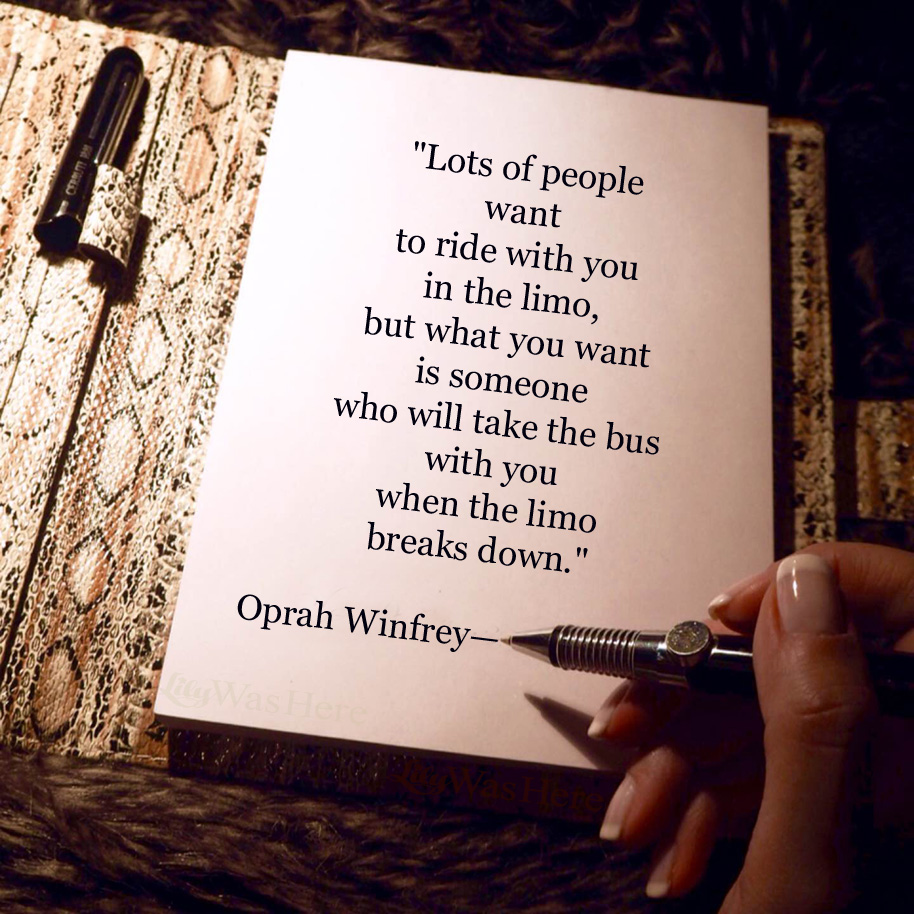 "Lots of people
want
to ride with you
in the limo,
but what you want
is someone
who will take the bus
with you
when the limo
breaks down."
Oprah Winfrey—
LilyWasHere
LilyWasHere